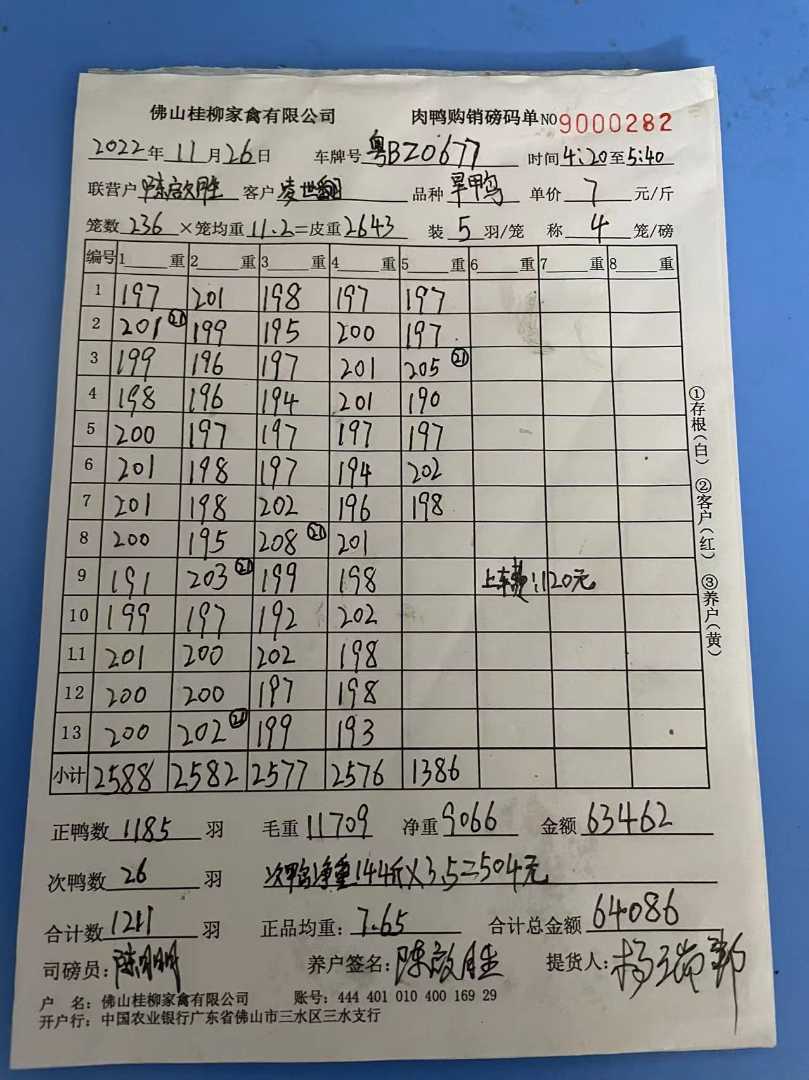 佛山桂柳家禽有限公司 肉鸭购销磅码单 NO 9000282
2022年 11月26日 车牌号 粤BZ0677 时间4:20至5:40
联营户 陈启胜 客户 凌世翻 品种 旱鸭 单价 7 元/斤
笼数 236 ×笼均重 11.2=皮重2643 装 5 羽/笼 称 4 笼/磅
编号 1 重 2 重 3 重 4 重 5 重 6 重 7 重 8 重
1 197 201 198 197 197
2 201 21 199 195 200 197
3 199 196 197 201 205 21
4 198 196 194 201 190
5 200 197 197 197 197
6 201 198 197 194 202
7 201 198 202 196 198
8 200 195 208 21 201
9 191 203 21 199 198 上车费:120元
10 199 197 192 202
11 201 200 202 198
12 200 200 197 198
13 200 202 21 199 193
小计 2588 2582 2577 2576 1386
①存根(白) ②客户(红) ③养户(黄)
正鸭数 1185 羽 毛重 11709 净重 9066 金额 63462
次鸭数 26 羽 次鸭净重144斤×3.5=504元
合计数 1211 羽 正品均重: 7.65 合计总金额 64086
司磅员: 陈明明 养户签名: 陈启胜 提货人:
户 名: 佛山桂柳家禽有限公司 账号: 444 401 010 400 169 29
开户行: 中国农业银行广东省佛山市三水区三水支行